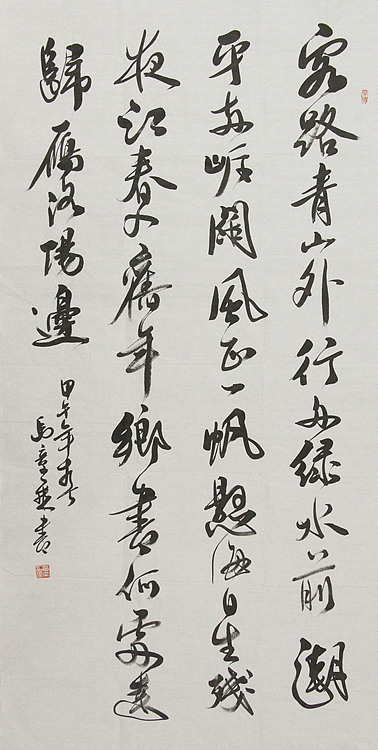 客路青山外行舟绿水前潮
平两岸阔風正一帆懸海日生残
夜江春入舊年鄉書何處達
歸雁洛陽邊
甲午年
書